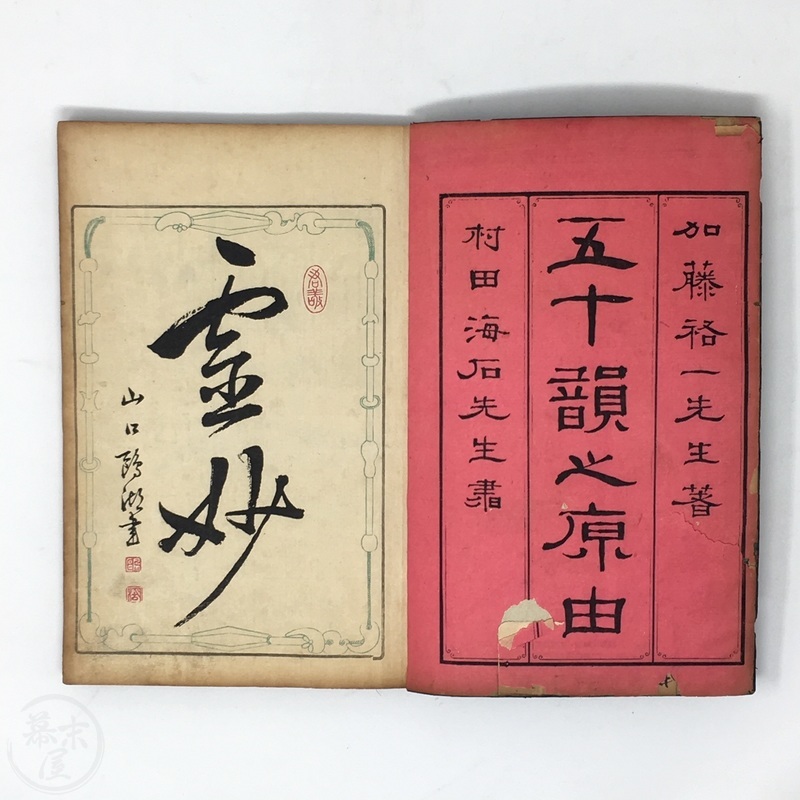 加藤祐一先生著
五十韻之原由
村田海石先生書
霊妙
山口
幕末屋